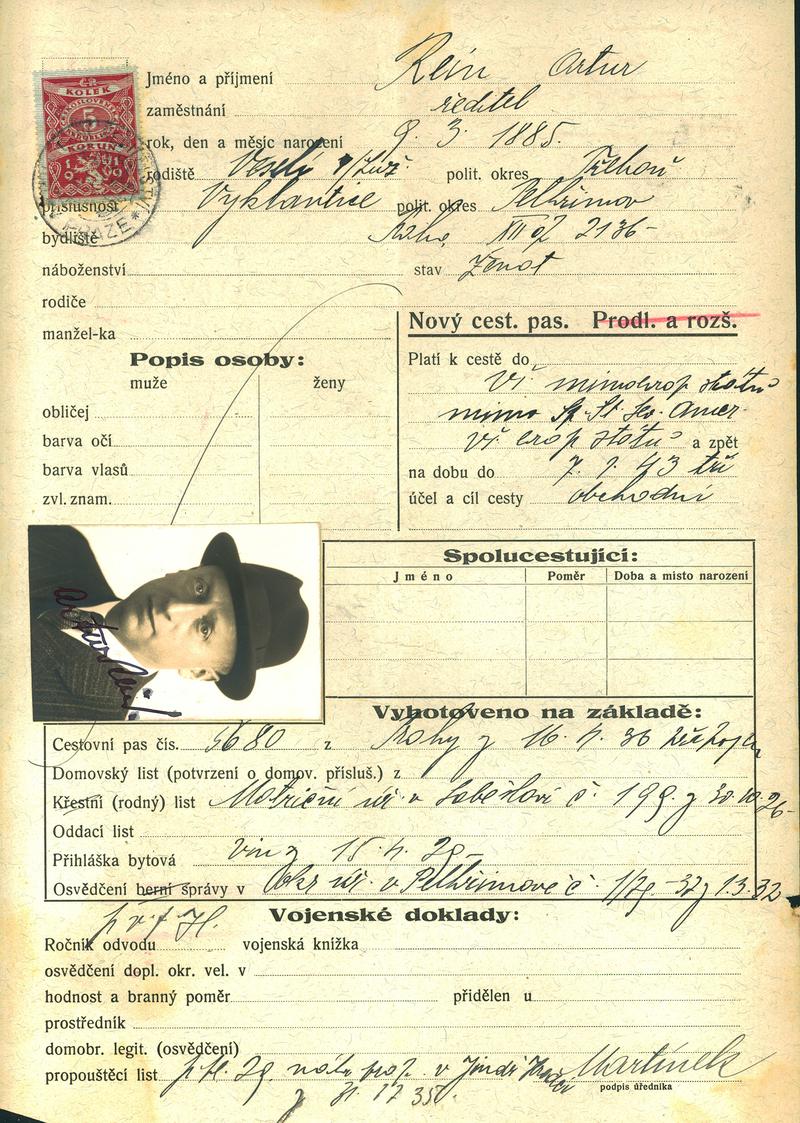 ČR
KOLEK
ČESKOSLOVENSKÁ
5
KORUN
1919
PRAZE
Jméno a příjmení Rein Artur
zaměstnání ředitel
rok, den a měsíc narození 9. 3. 1885.
rodiště Veselí n/Luž. polit. okres Třeboň
příslušnost Vyklantice polit. okres Pelhřimov
bydliště XII 2136-
náboženství stav ženat
rodiče
manžel-ka
Nový cest. pas. Prodl. a rozš.
Popis osoby:
muže ženy
obličej
barva očí
barva vlasů
zvl. znam.
Platí k cestě do
vš. mimoevrop. států
mimo Sp. St. Sev. Amer.
vš. evrop. států a zpět
na dobu do 7. 1. 43 tří
účel a cíl cesty obchodní
Artur Rein
Spolucestující:
Jméno Poměr Doba a místo narození
Vyhotoveno na základě:
Cestovní pas čís. 5680 z z 16. 4. 36
Domovský list (potvrzení o domov. přísluš.) z
Křestní (rodný) list Matriční úř. v Soběslavi č. 199. z 30. 10. 26-
Oddací list
Přihláška bytová z 15. 4. 29-
Osvědčení berní správy v Okr. úř. v Pelhřimově č. 1/79-32 z 1.3.32
Vojenské doklady:
Ročník odvodu vojenská knížka
osvědčení dopl. okr. vel. v
hodnost a branný poměr přidělen u
prostředník
domobr. legit. (osvědčení)
propouštěcí list v Jindř. Hradci Martínek
podpis úředníka
z 31. 12 35.